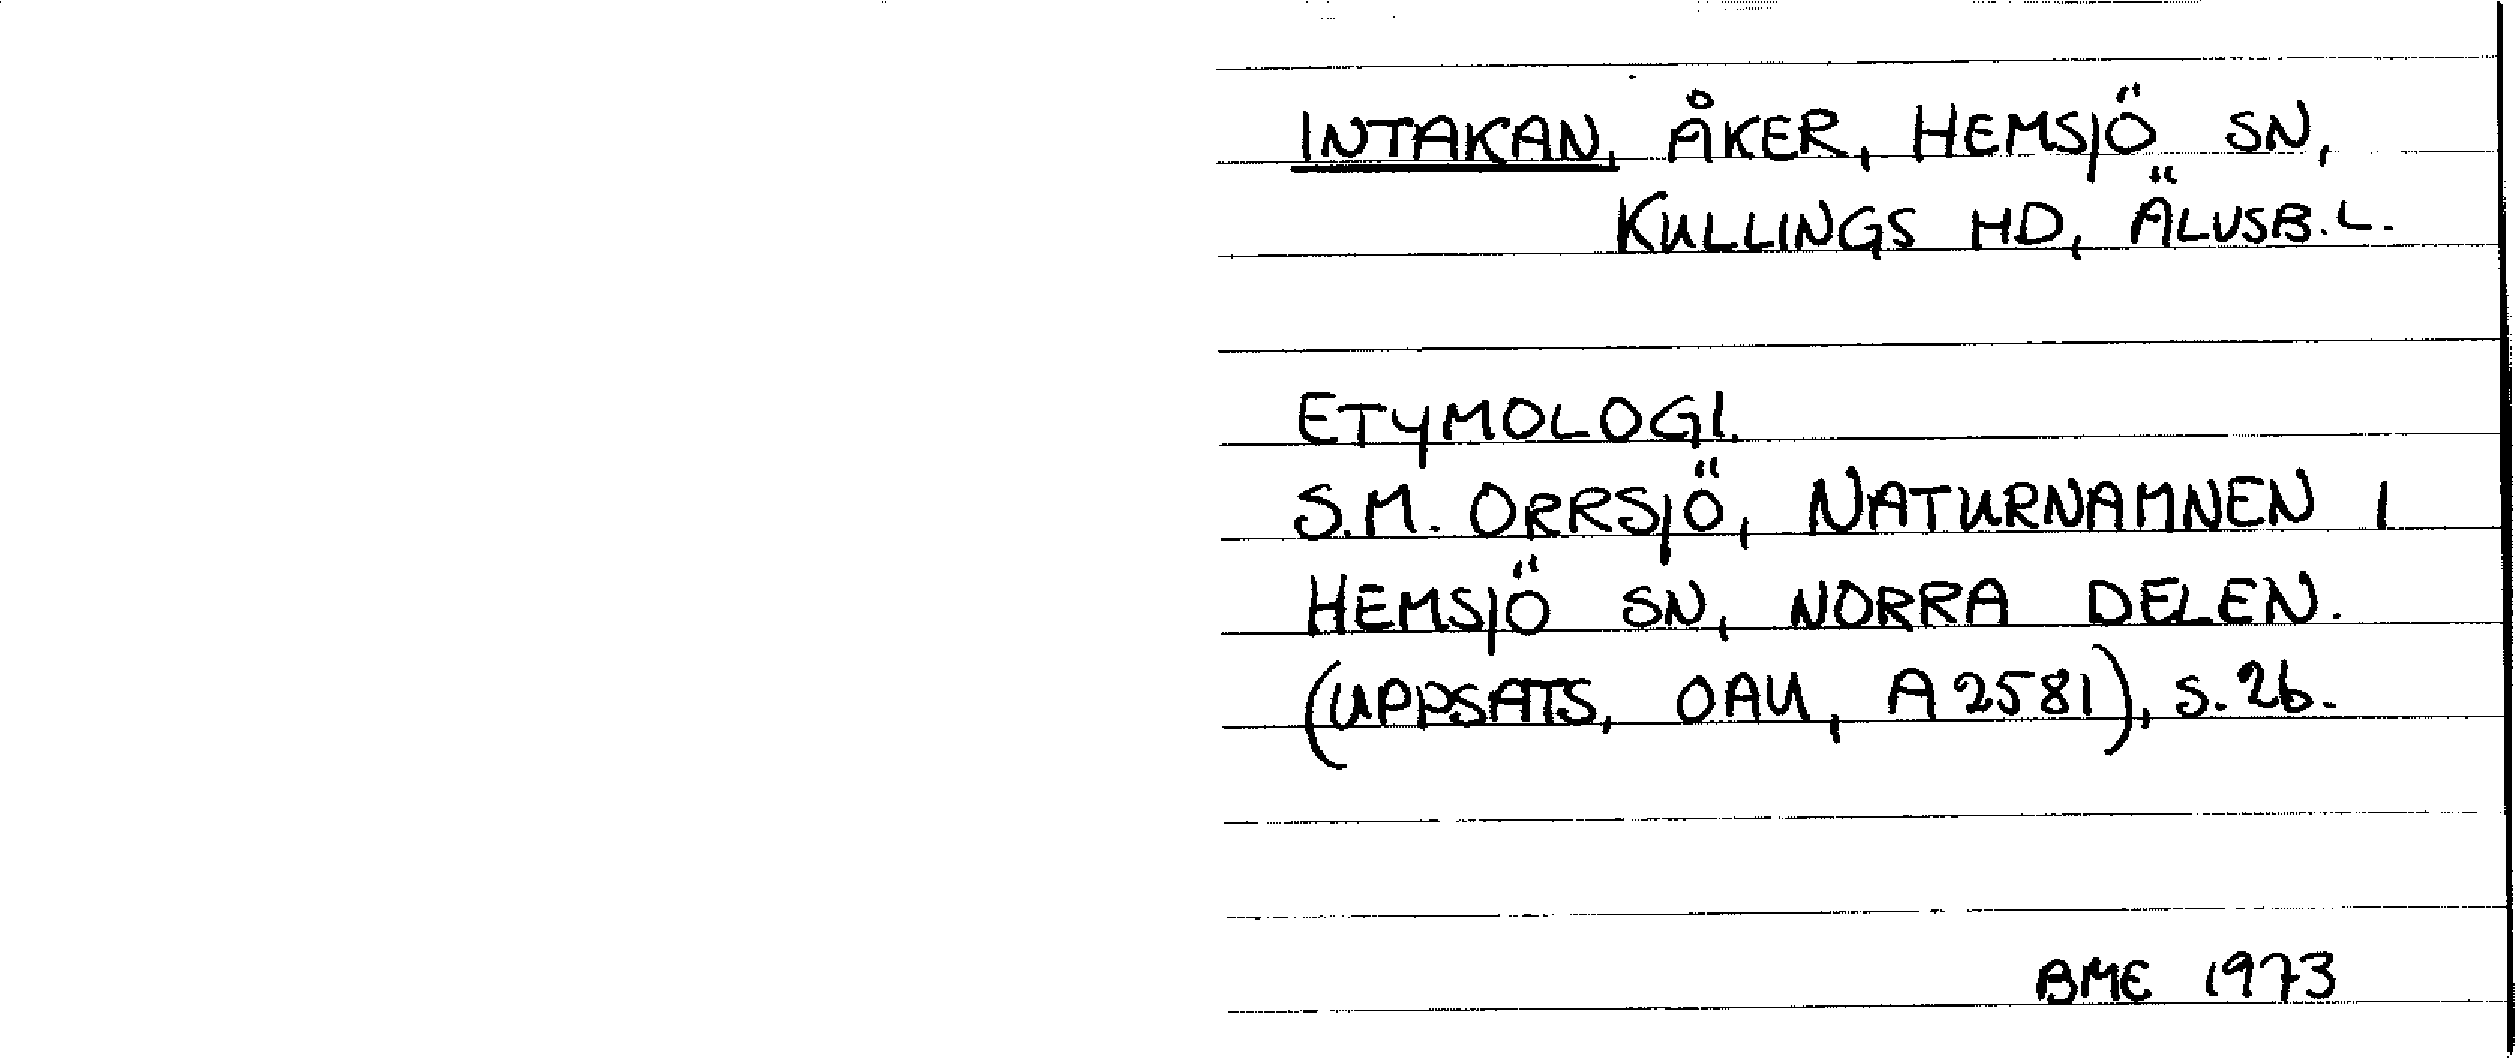 INTAKAN, ÅKER, HEMSJÖ SN,
KULLINGS HD, ÄLVSB. L.
ETYMOLOGI.
S.M. ORRSJÖ, NATURNAMNEN I
HEMSJÖ SN, NORRA DELEN.
(UPPSATS, OAU, A2581), S. 26.
BME 1973